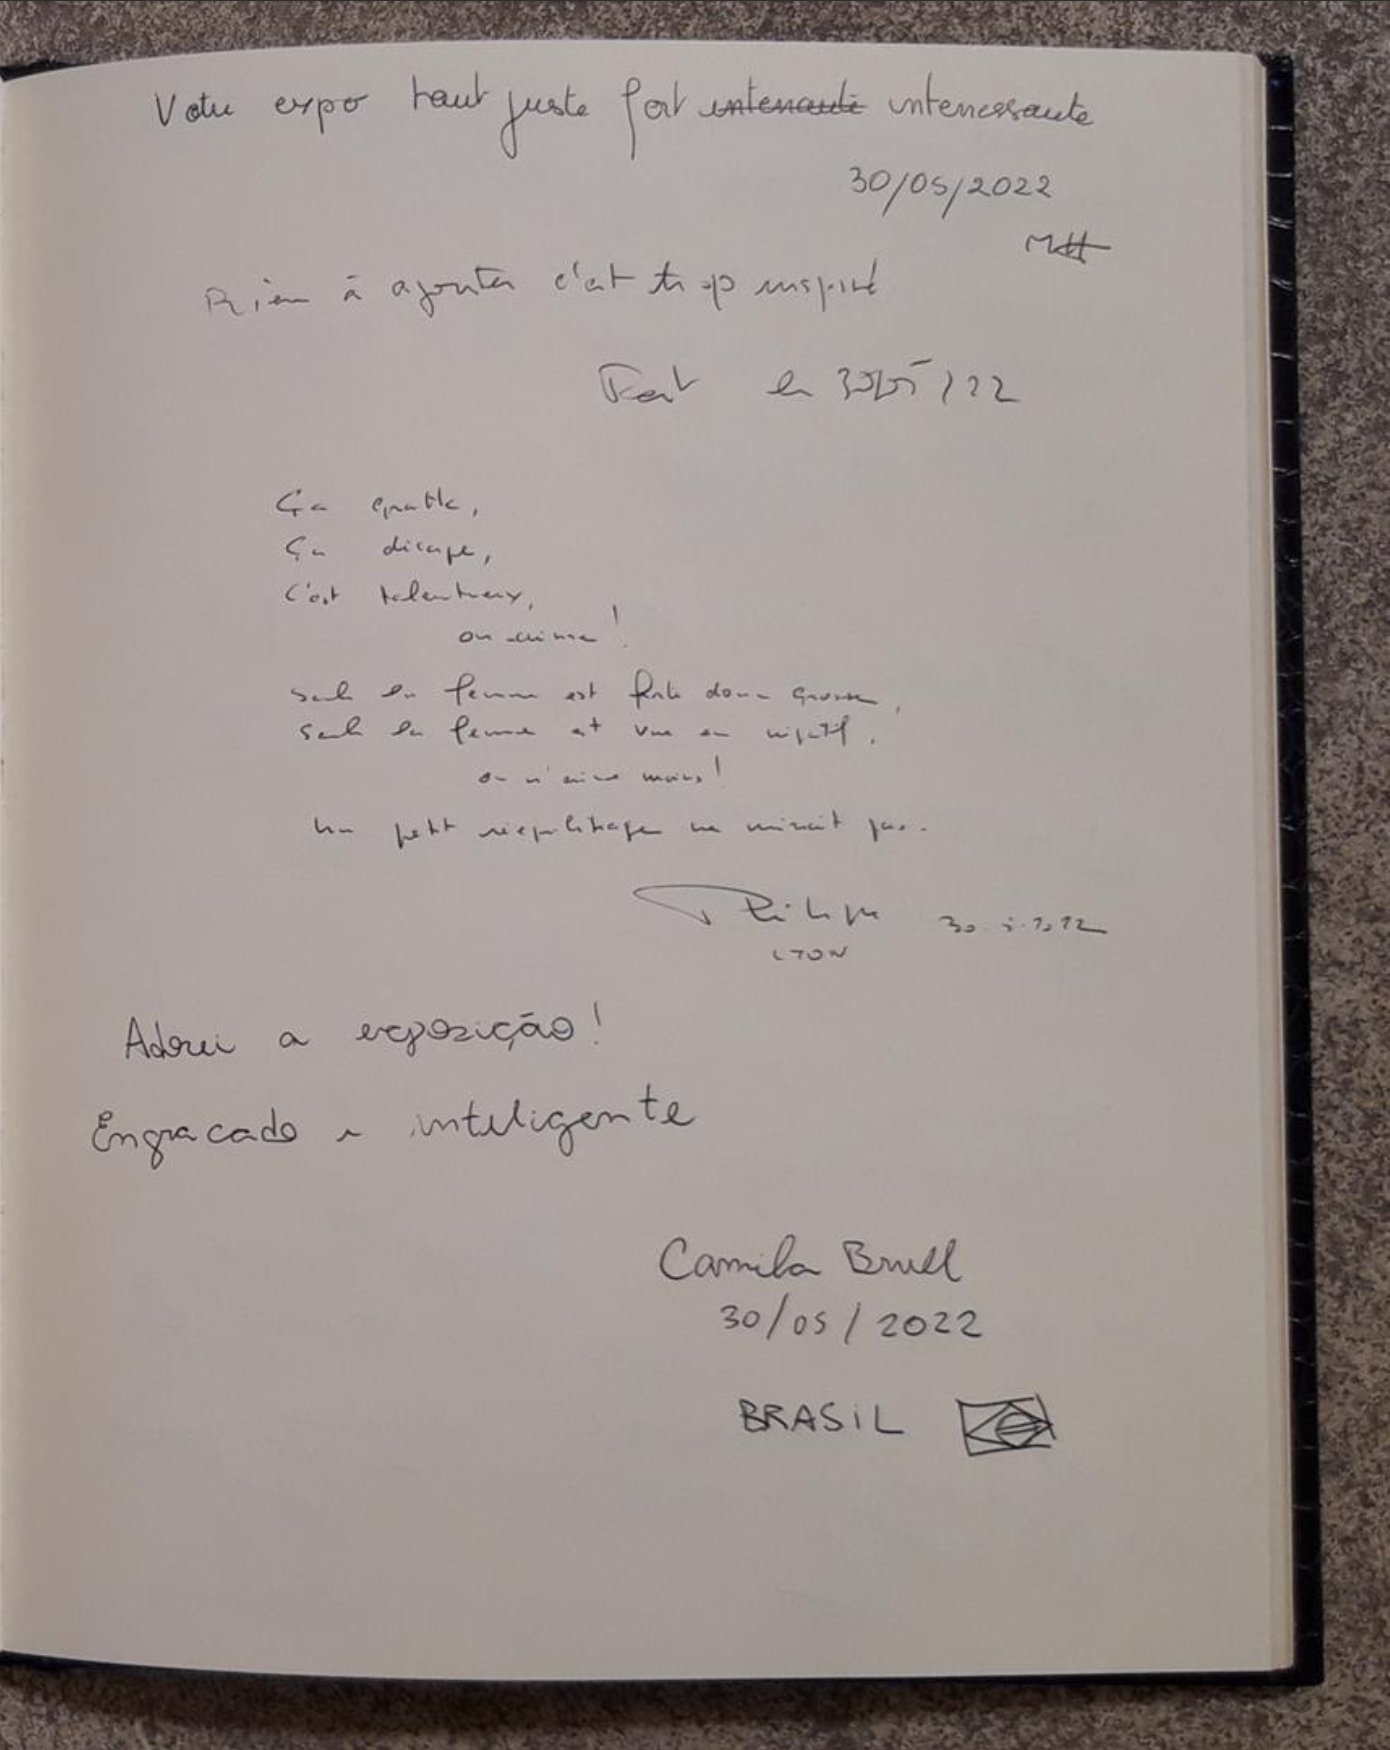 Votre expo tout juste fort intenante interessante
30/05/2022
MH
Rien à ajouter c'est trop inspiré
le 30/05/22
Ça epatte,
Ça décape,
C'est talentueux,
on aime !
Seule la femme est forte donc grosse,
Seule la femme est vue en négatif.
on n'aime moins !
Un petit rééquilibrage ne nuirait pas.
Philippe 30.5.2022
LYON
Adorei a exposição!
Engracado e inteligente
Camila Brull
30/05/2022
BRASiL